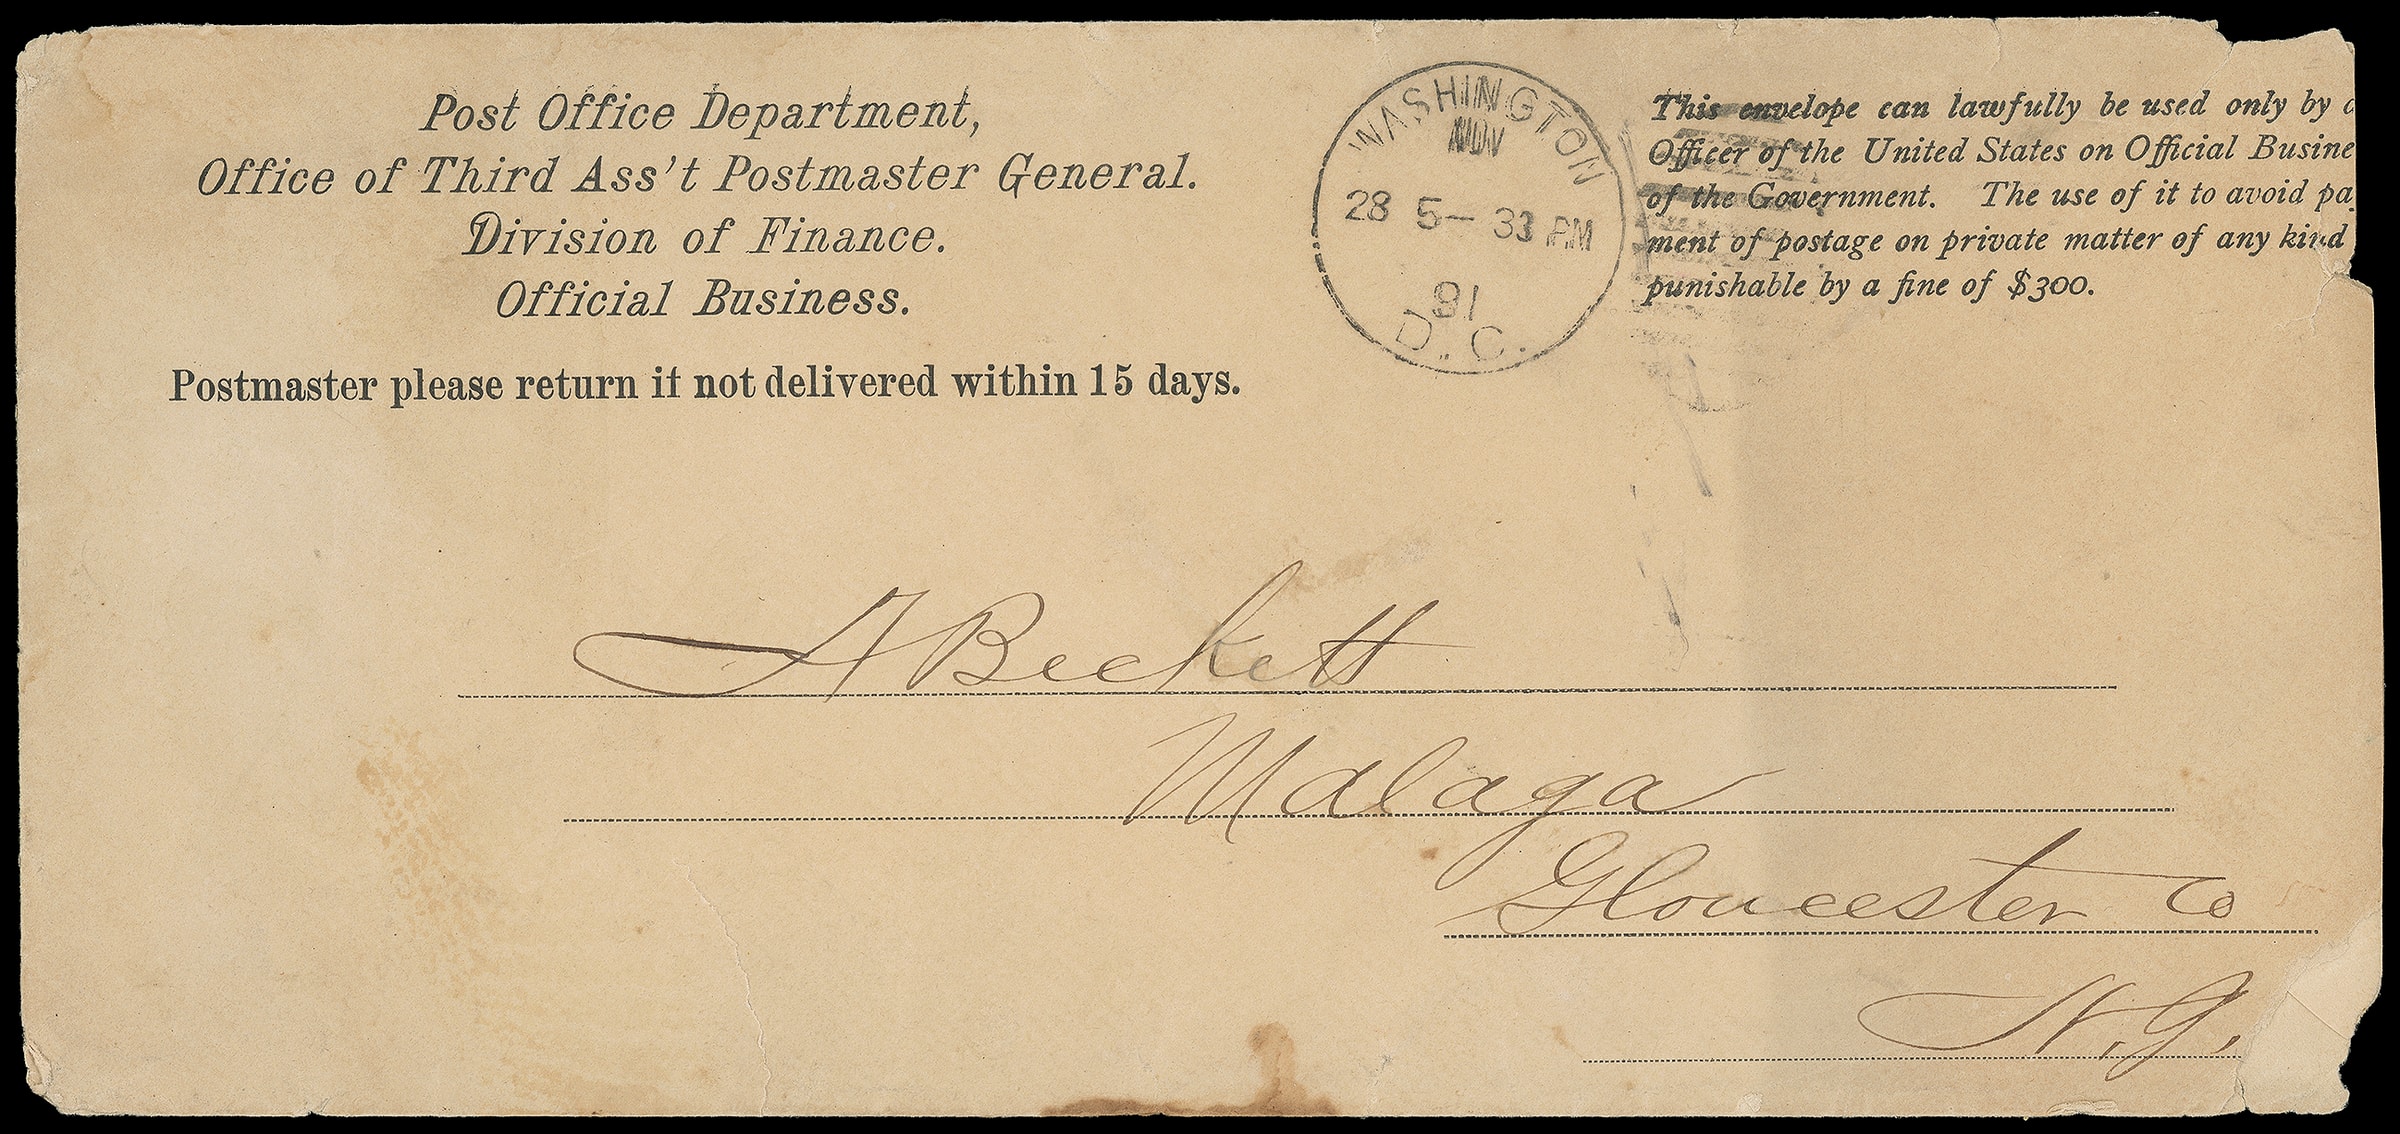 Post Office Department,
Office of Third Ass't Postmaster General.
Division of Finance.
Official Business.
Postmaster please return if not delivered within 15 days.
WASHINGTON
NOV
28 5- 33 PM
91
D.C.
This envelope can lawfully be used only by
Officer of the United States on Official Busine
of the Government. The use of it to avoid pa
ment of postage on private matter of any kind
punishable by a fine of $300.
A Beckett
Malaga
Gloucester Co
N.J.